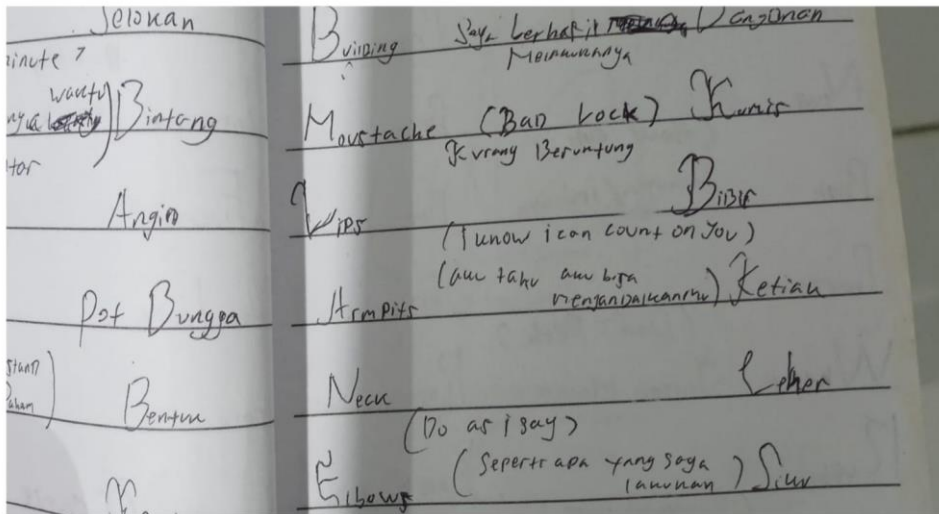 Selokan
minute?
waktu
Bintang
Angin
Pot Bungga
Bentuk
Building Saya berhasil Bangunan
Moustache (Bad lock) Kumis
Kurang Beruntung
Lips Bibir
(I know i can count on you)
(aku tahu aku bisa
mengandalkanmu)
Armpits Ketiak
Neck Leher
(Do as i say)
(Seperti apa yang saya
lakukan)
Elbows Siku